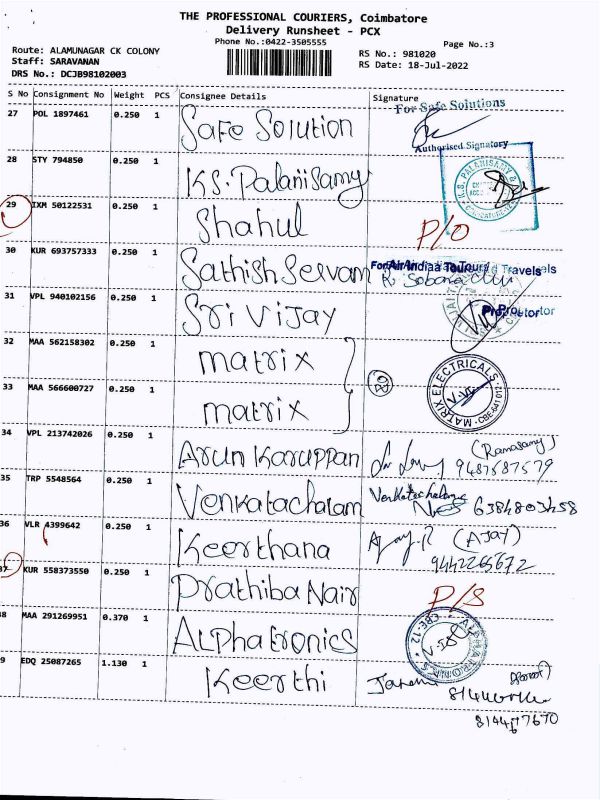 THE PROFESSIONAL COURIERS, Coimbatore
Delivery Runsheet - PCX
Phone No.:0422-3505555
Page No.:3
Route: ALAMUNAGAR CK COLONY
Staff: SARAVANAN
DRS No.: DCJB98102003
RS No.: 981020
RS Date: 18-Jul-2022
S No Consignment No Weight PCS Consignee Details Signature
For Safe Solutions
27 POL 1897461 0.250 1 Safe Solution
Authorised Signatory
28 STY 794850 0.250 1 K.S. Palanisamy
29 IXM 50122531 0.250 1 Shahul P/O
30 KUR 693757333 0.250 1 Sathish Servam
31 VPL 940102156 0.250 1 Sri Vijay
32 MAA 562158302 0.250 1 matrix
MATRIX ELECTRICALS CBE-641 012
33 MAA 566600727 0.250 1 matrix
34 VPL 213742026 0.250 1 Arun Karuppan (Ramasamy) 9487587579
35 TRP 5548564 0.250 1 Venkatachalam 6384803458
36 VLR 4399642 0.250 1 Keerthana (AJAY)
9442265672
37 KUR 558373550 0.250 1 Prathiba Nair P/S
8 MAA 291269951 0.370 1 Alphatronics
9 EDQ 25087265 1.130 1 Keerthi